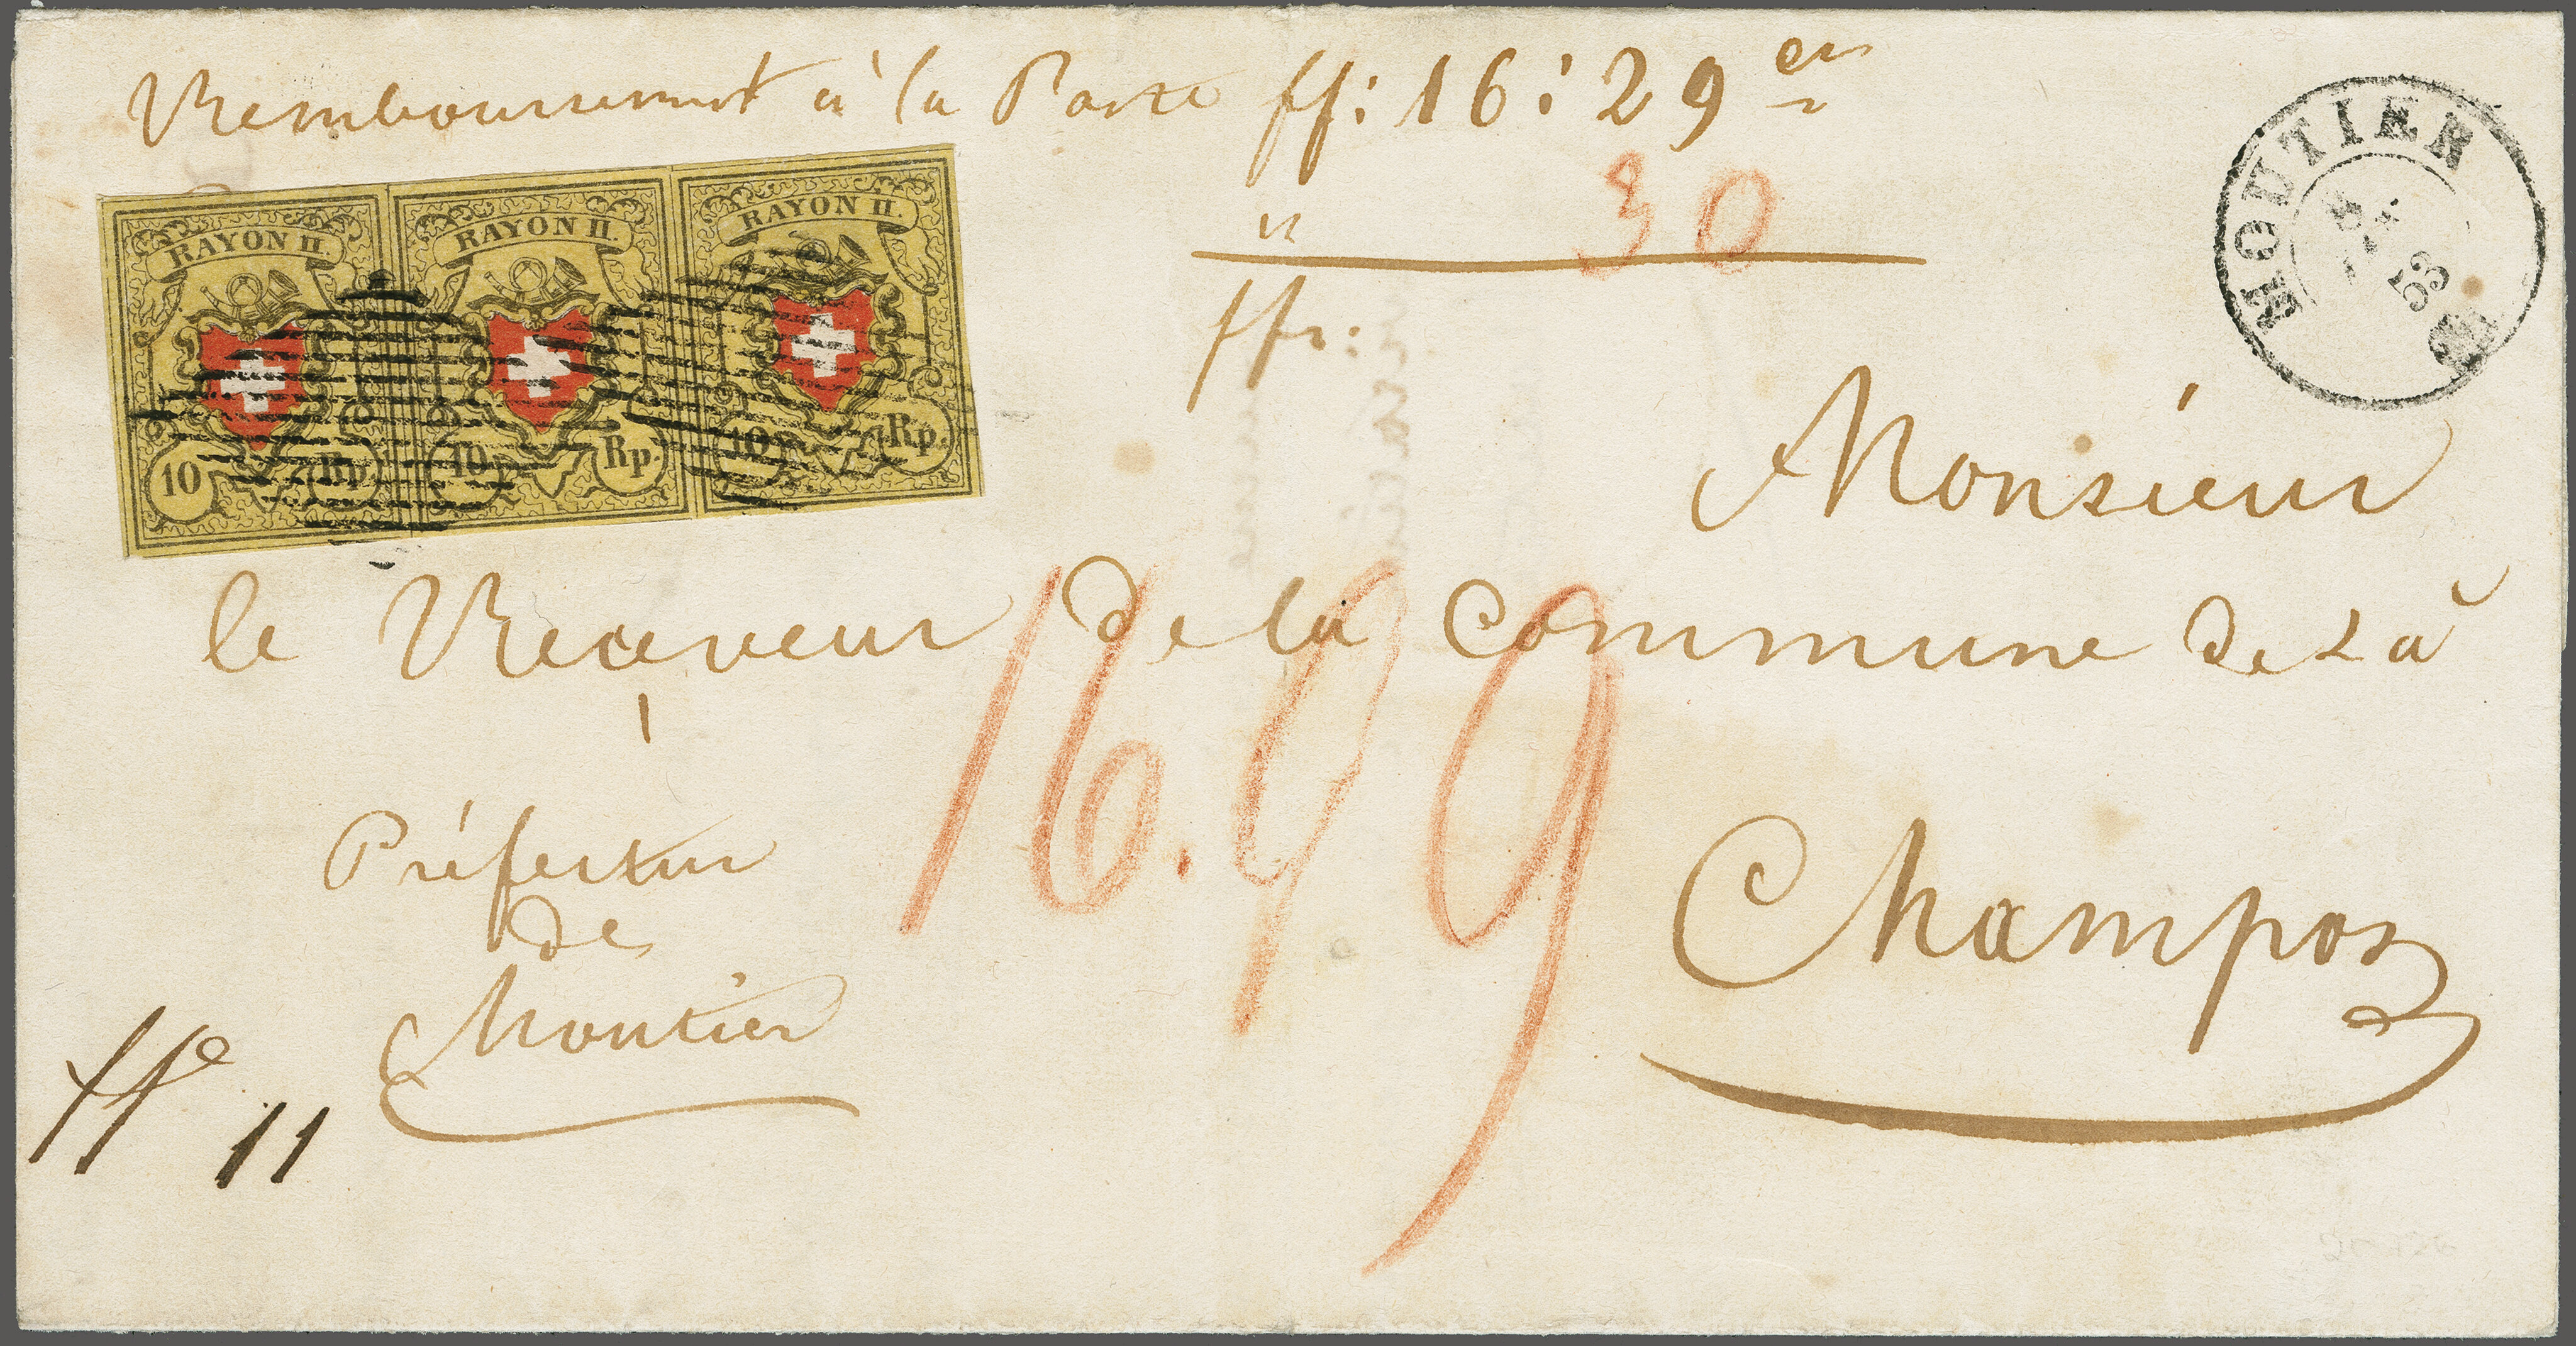 Remboursement à la Poste ff: 16: 29 cs
30
ffr:
MOUTIER
53
RAYON II. RAYON II. RAYON II.
10 Rp. 10 Rp. 10 Rp.
Monsieur
le Receveur de la Commune de et à
16.99
Champoz
Préfecture
de
Moutier
11